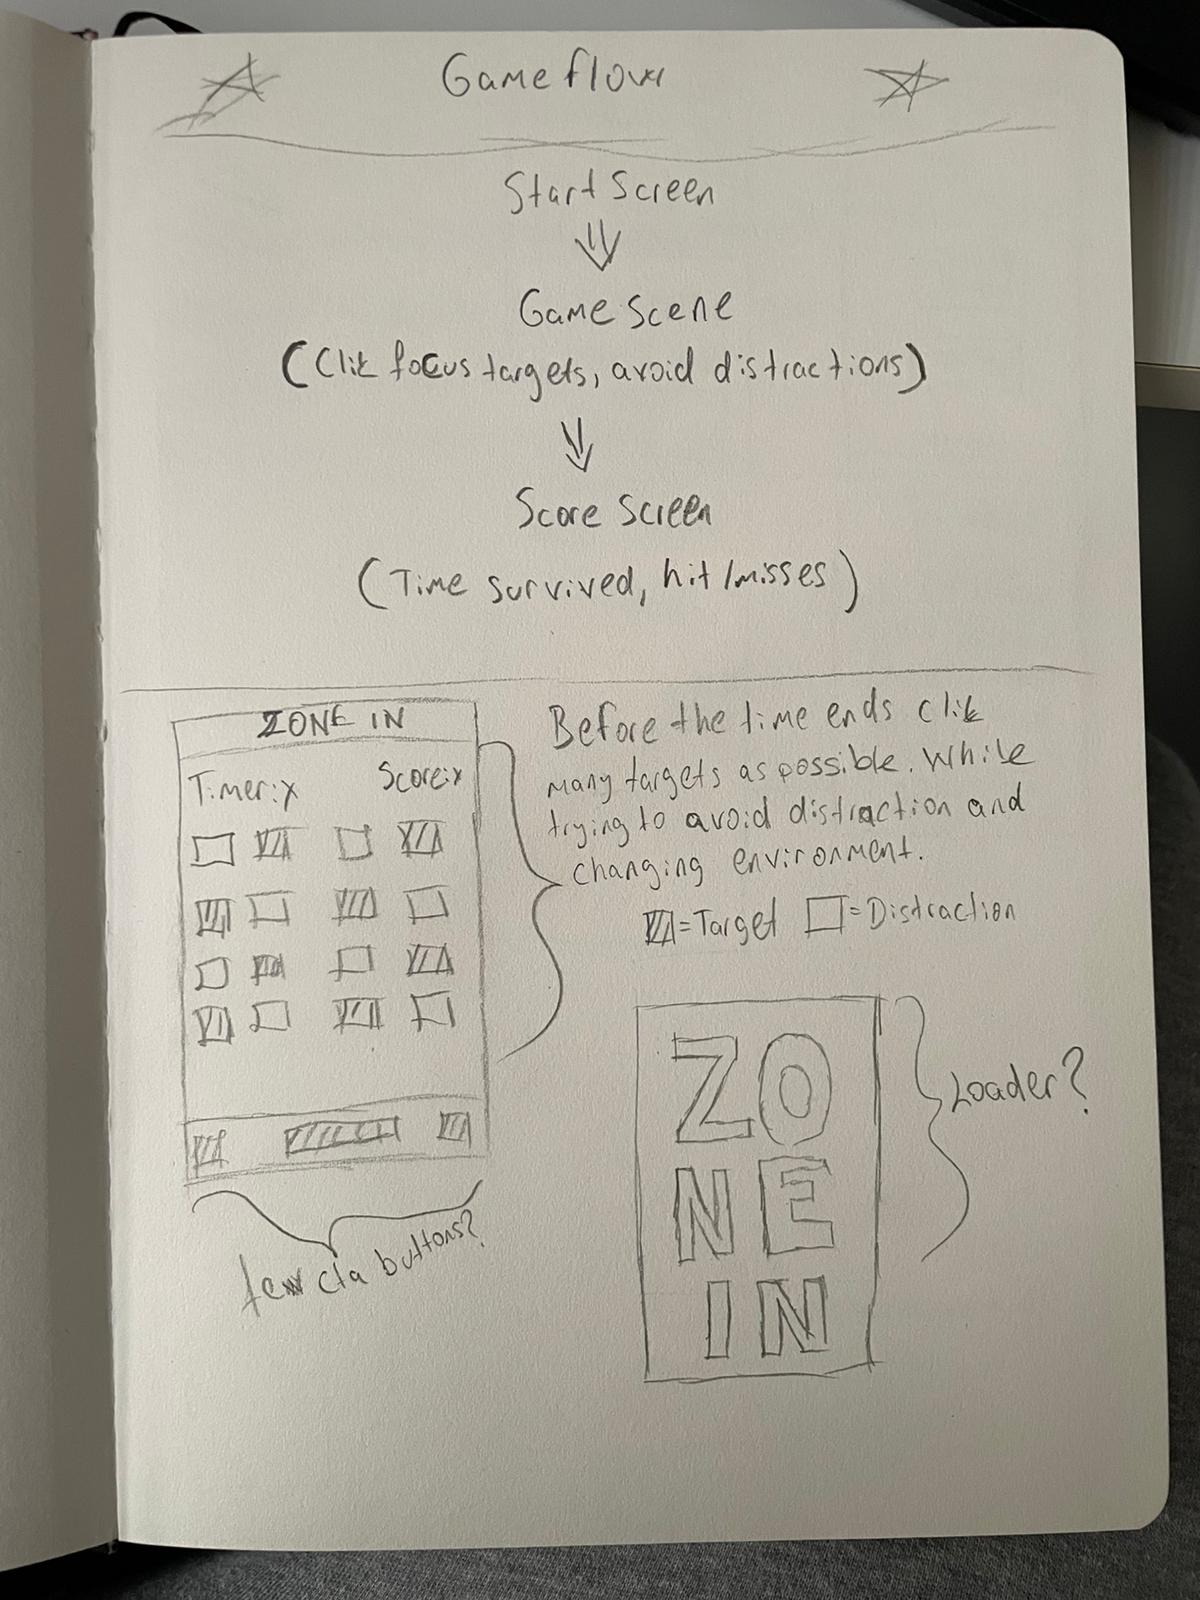 Game flow
Start Screen
Game Scene
(Clik focus targets, avoid distractions)
Score Screen
(Time survived, hit/misses)
ZONE IN
Timer:x Score:x
Before the time ends clik
many targets as possible. While
trying to avoid distraction and
changing environment.
=Target =Distraction
ZO
NE
IN
Loader?
few cta buttons?